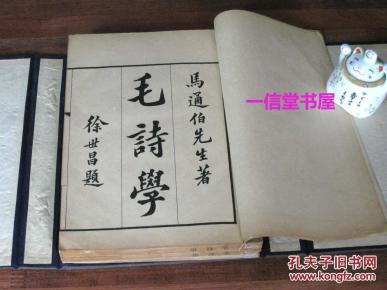 馬通伯先生著
毛詩學
徐世昌題
一信堂书屋
孔夫子旧书网